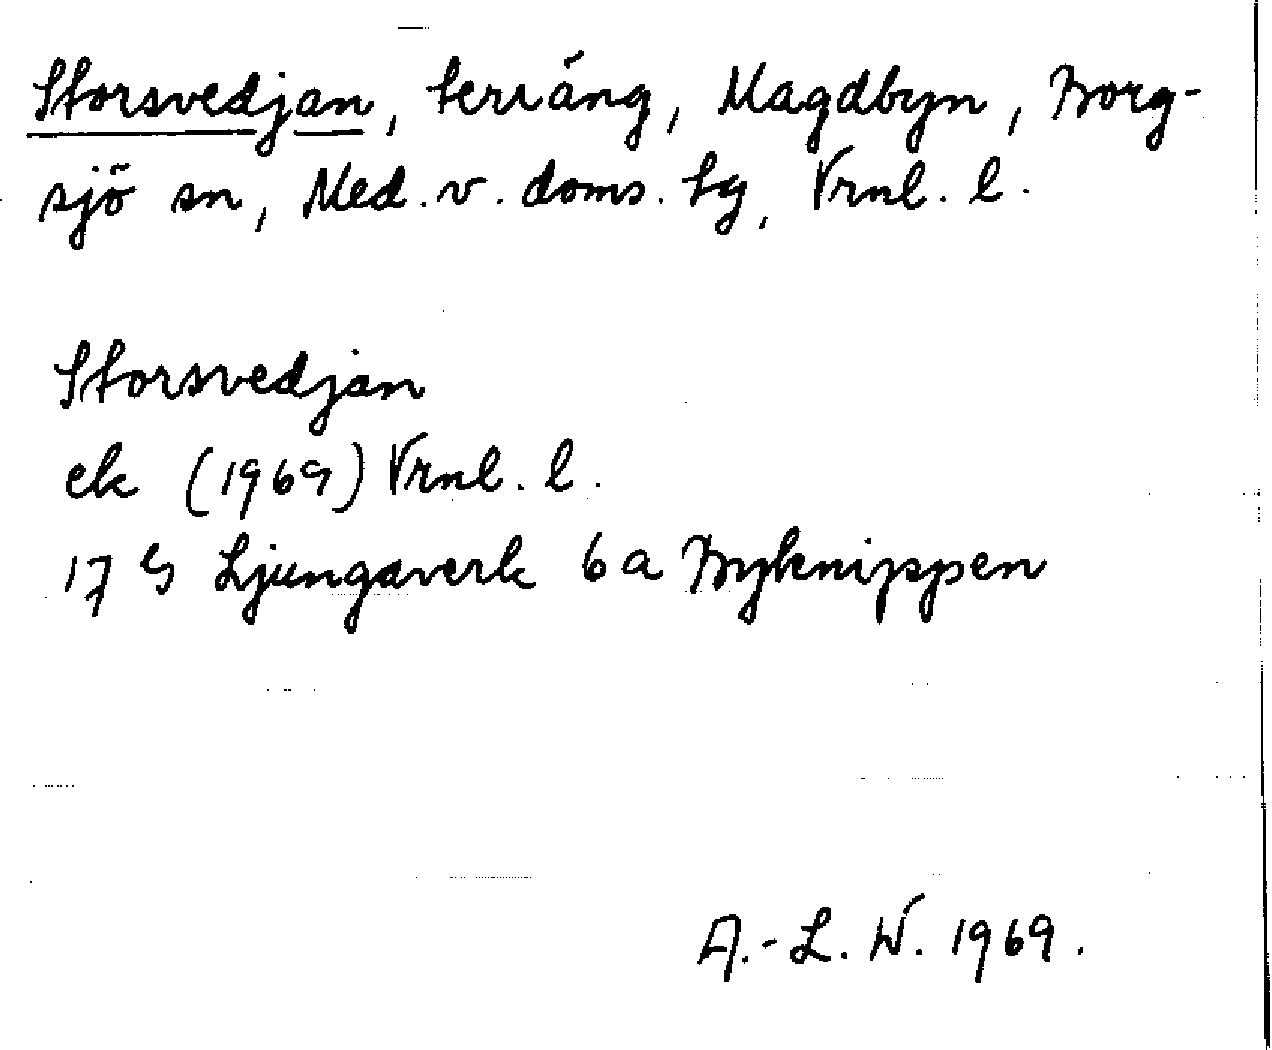 Storsvedjan, terräng, Magdbyn, Borg-
sjö sn, Med. v. doms. tg, Vrnl. l.
Storsvedjan
ek (1969) Vrnl. l.
17 G Ljungaverk 6 a Byknippen
A.-L. W. 1969.